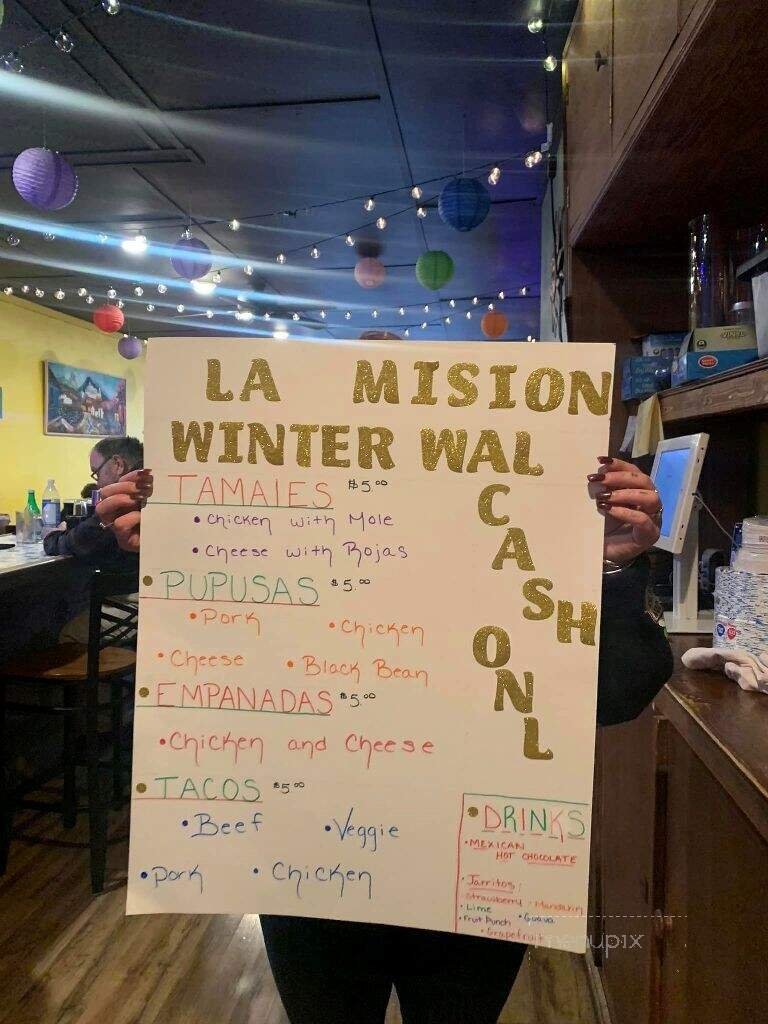 LA MISION
WINTER WAL
CASH
ONL
TAMALES $5.00
• Chicken with Mole
• Cheese with Rojas
• PUPUSAS $5.00
• Pork • Chicken
• Cheese • Black Bean
• EMPANADAS $5.00
• Chicken and Cheese
• TACOS $5.00
• Beef • Veggie
• Pork • Chicken
• DRINKS
• MEXICAN
HOT CHOCOLATE
• Jarritos:
Strawberry • Mandarin
• Lime
• Fruit Punch • Guava
• Grapefruit
menupix